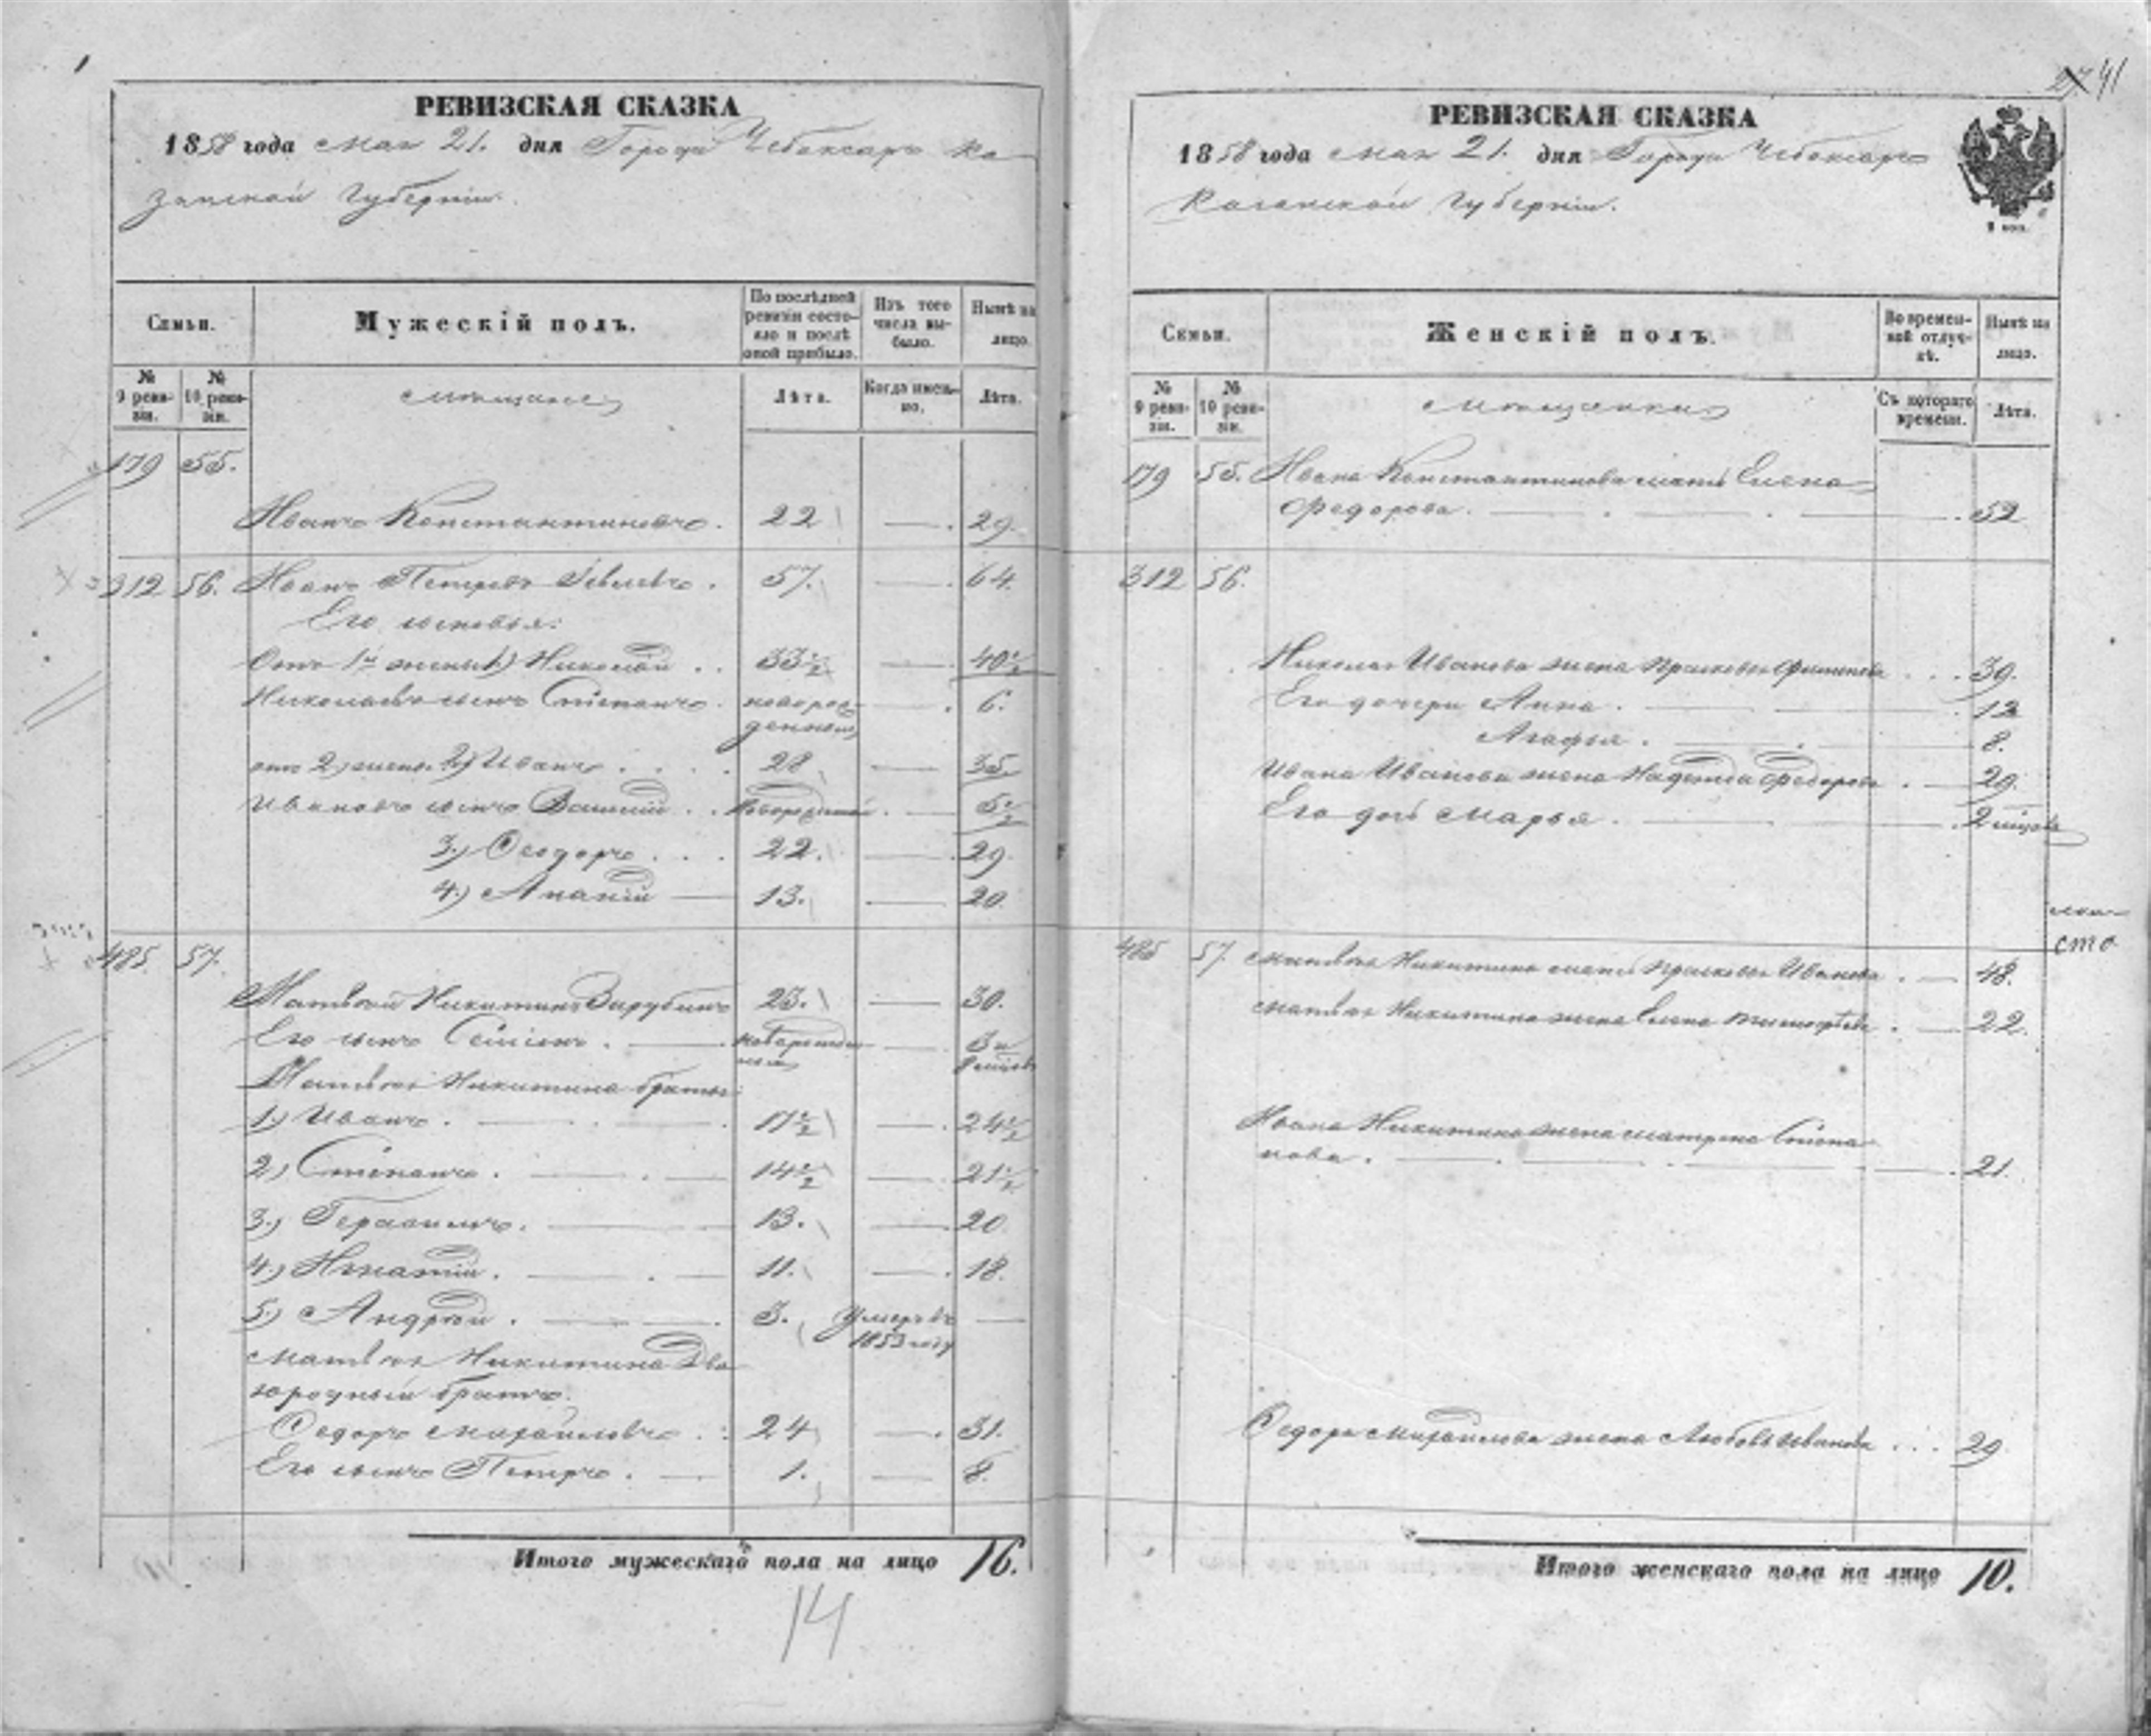 РЕВИЗСКАЯ СКАЗКА
1858 года мая 21. дня Города Чебоксаръ Ка-
занской Губерніи.
Семьи.
Мужескій полъ.
По послѣдней ревизіи состояло и послѣ оной прибыло.
Изъ того числа выбыло.
Нынѣ на лицо.
№ 9 ревизіи.
№ 10 ревизіи.
мѣщане
Лѣта.
Когда именно.
Лѣта.
179 55.
Иванъ Константиновъ. 22 — 29.
312 56. Иванъ Петровъ 57. — 64.
Его сыновья:
Отъ 1й жены 1.) Николай . . 33½ — 40½
Николаевъ сынъ Степанъ. новорожденный . 6.
отъ 2) жены. 2) Иванъ . . . . 28 — 35.
Ивановъ сынъ Василій . . новорожденный . — 5½
3.) Ѳеодоръ . . . 22. — 29.
4.) Ананій — 13. — 20.
485. 57.
Матвей Никитинъ Зарубинъ 23. — 30.
Его сынъ Семенъ . — новорожденный — 3 и 8 мѣсяц.
Матвея Никитина братья:
1.) Иванъ. — 17½ — 24½
2.) Степанъ. — 14½ — 21½
3.) Герасимъ. — 13. — 20.
4.) Игнатій. — 11. — 18.
5.) Андрей. — 3. Умеръ въ 1853 году —
Матвея Никитина Дво-
юродный братъ.
Ѳедоръ Михайловъ . : 24 — 31.
Его сынъ Петръ . — 1. — 8.
Итого мужескаго пола на лицо 16.
14
41
РЕВИЗСКАЯ СКАЗКА
1858 года мая 21. дня Города Чебоксаръ
Казанской Губерніи.
Семьи.
Женскій полъ.
Во временной отлучкѣ.
Нынѣ на лицо.
№ 9 ревизіи.
№ 10 ревизіи.
мѣщанки
Съ котораго времени.
Лѣта.
179 55. Ивана Константинова мать Елена
Ѳедорова. — 52
312 56.
Николая Иванова жена Прасковья . . . 39.
Его дочери Анна . — 12
Агафья . — 8.
Ивана Иванова жена Надежда Ѳедорова . — 29.
Его дочь Марья . — 2 мѣсяца
485 57. Матвея Никитина мать Прасковья Иванова . — 48.
Матвея Никитина жена Елена Тимофѣева . — 22.
Ивана Никитина жена Матрена Степа-
нова . — 21.
Ѳедора Михайлова жена Любовь Иванова . . . 29
Итого женскаго пола на лицо 10.